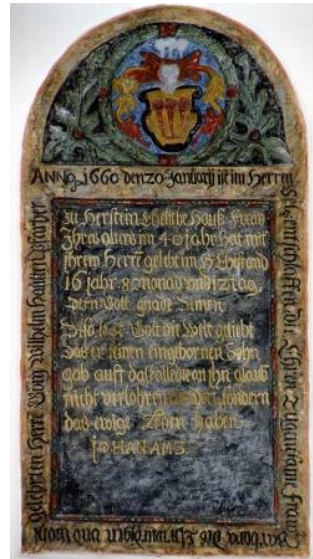 ANNO 1660 den 20 January ist im Herren
Ehrn Tugentsame Frau
Barbara des Ehrwürdigen und wohl
gelehrten Herrn Georg Wilhelm
zu Herstein Eheliche Hauß Frau
Ihres alters im 40 jahr Hat mit
ihrem Herrn gelebt im H Ehestand
16 jahr 8 monad und 12 tag,
dern Gott gnade Amen
Also hat Gott die Welt geliebt
das er seinen eingebornen Sohn
gab auff das alle die an ihn glaub
nicht verlohren werden, sondern
das ewige Leben haben
JOHAN AM 3